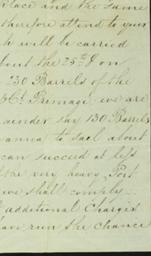 place and the same
therefore attend to your
h will be carried
bout the 25th &
230 Barrels of the
Primage, we are
under the 130 Barrels
anna to sail about
can succeed at left
the very heavy Port
we shall comple-
additional Charges
run the chance